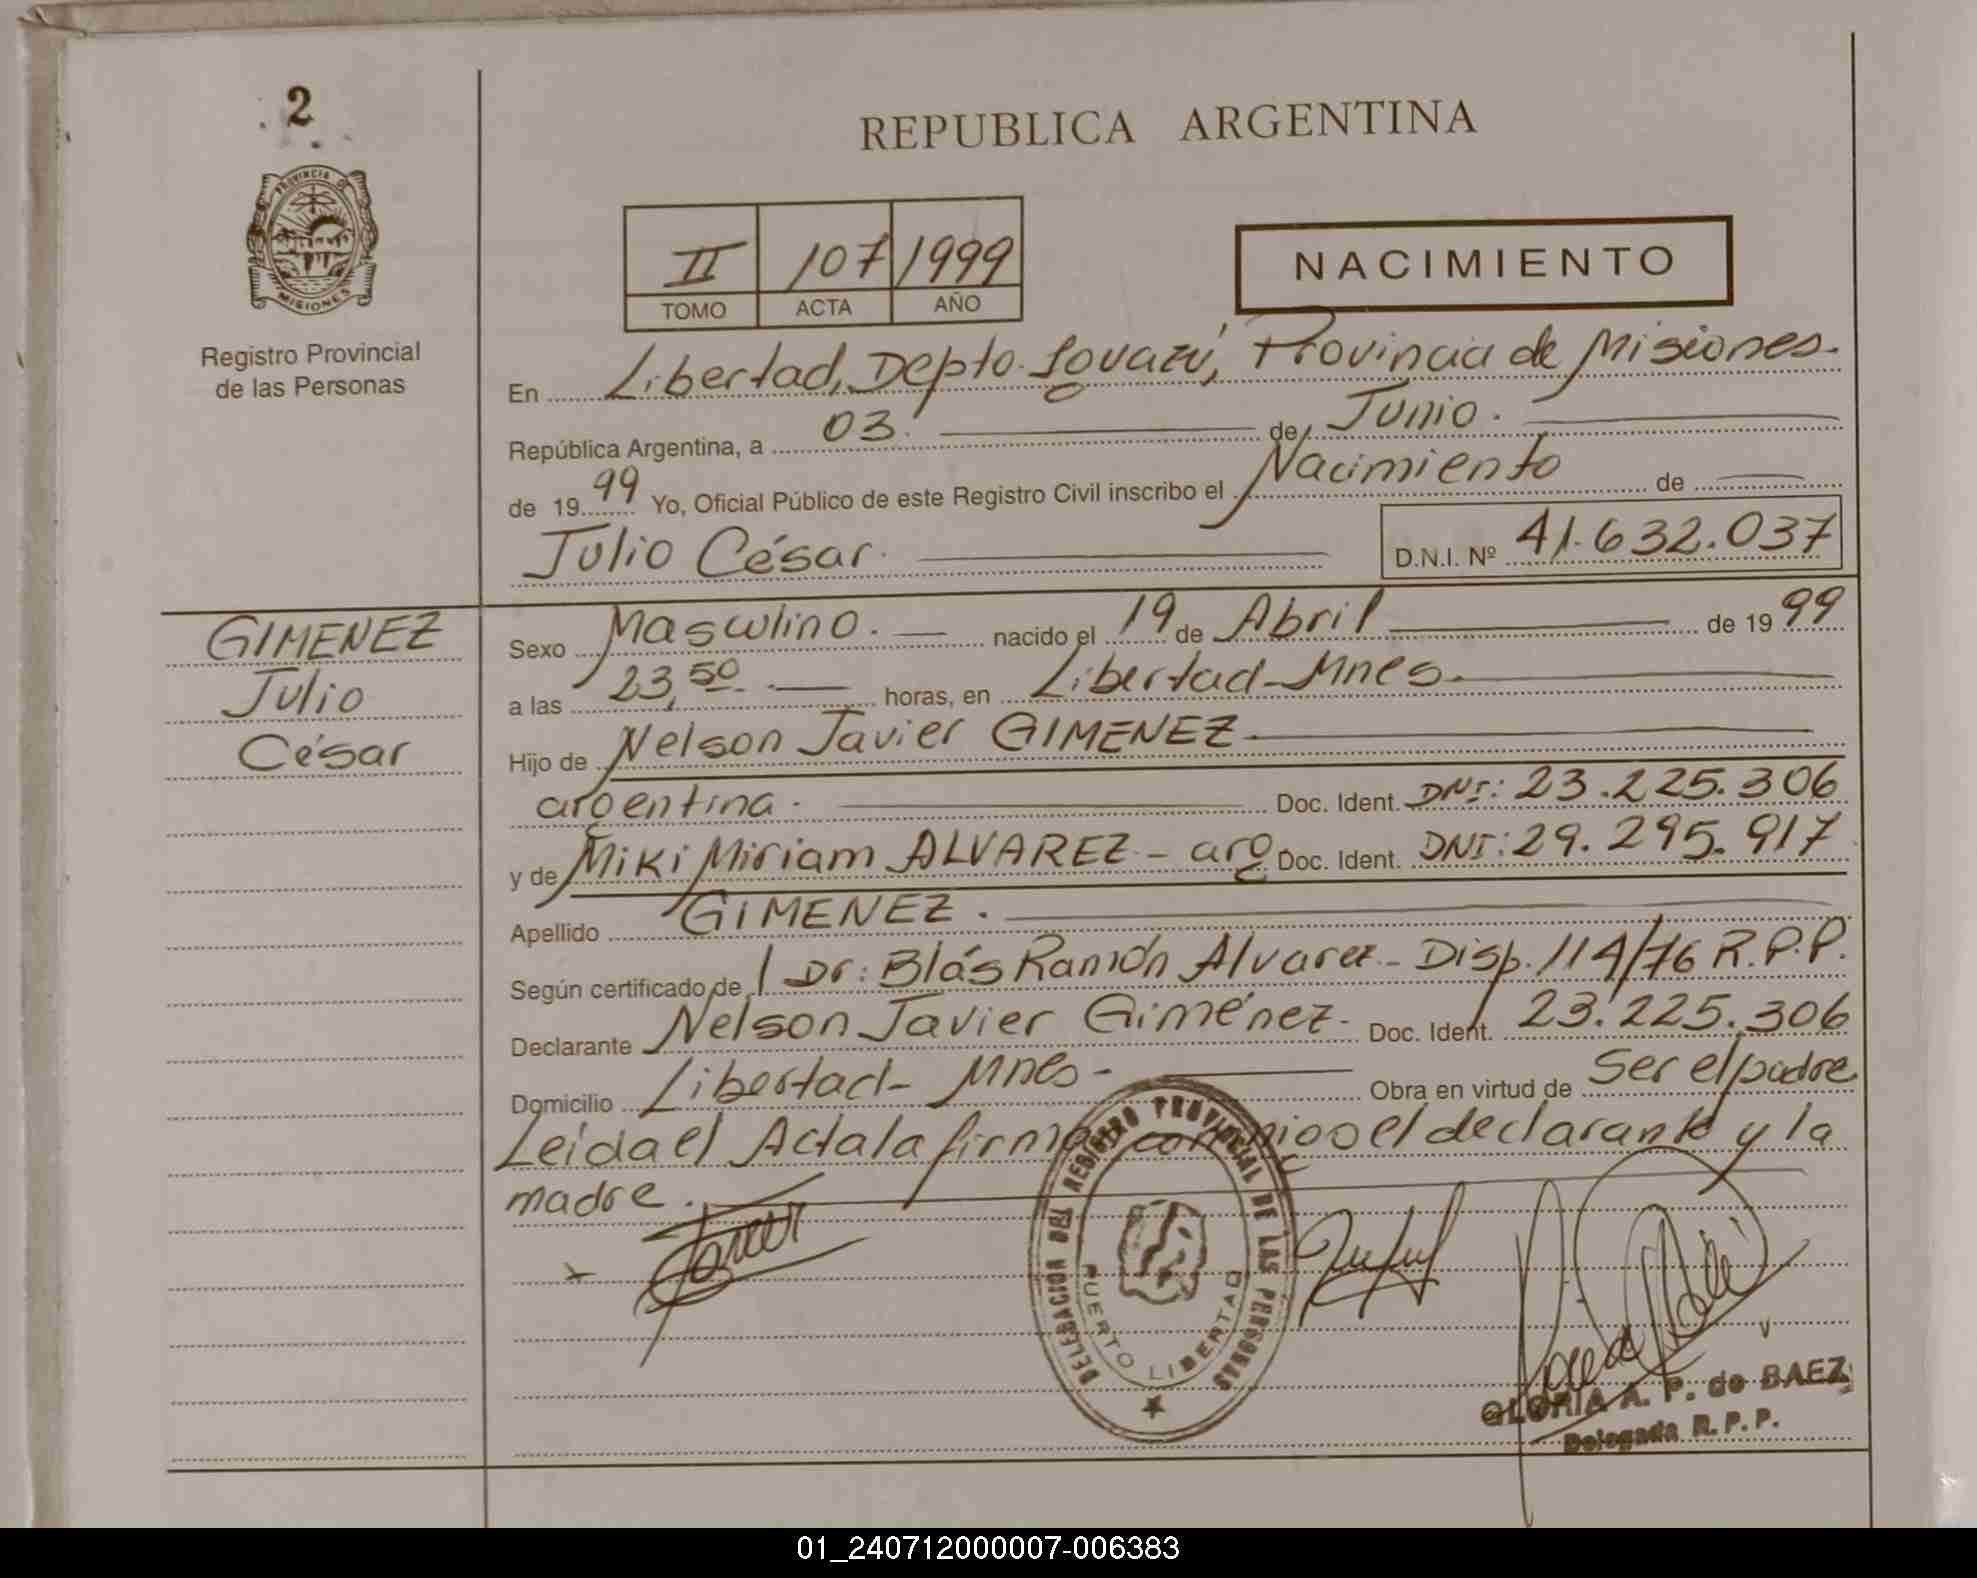 2
PROVINCIA DE
MISIONES
Registro Provincial
de las Personas
REPUBLICA ARGENTINA
II 107 1999
TOMO ACTA AÑO
NACIMIENTO
En Libertad, Depto. Iguazú, Provincia de Misiones.
República Argentina, a 03. de Junio.
de 1999 Yo, Oficial Público de este Registro Civil inscribo el Nacimiento de
Julio César.
D.N.I. Nº 41.632.037
GIMENEZ
Julio
César
Sexo Masculino. nacido el 19 de Abril de 1999
a las 23,50 horas, en Libertad-Mnes.
Hijo de Nelson Javier GIMENEZ
argentina. Doc. Ident. DNI: 23.225.306
y de Miki Miriam ALVAREZ - arg Doc. Ident. DNI: 29.295.917
Apellido GIMENEZ.
Según certificado de Dr: Blás Ramón Alvarez - Disp. 114/76 R.P.P.
Declarante Nelson Javier Giménez. Doc. Ident. 23.225.306
Domicilio Libertad- Mnes- Obra en virtud de Ser el padre
Leida el Acta la firma conmigo el declarante y la
madre.
DELEGACION DEL REGISTRO PROVINCIAL DE LAS PERSONAS
PUERTO LIBERTAD
GLORIA A. P. de BAEZ
Delegada R. P. P.
01_240712000007-006383